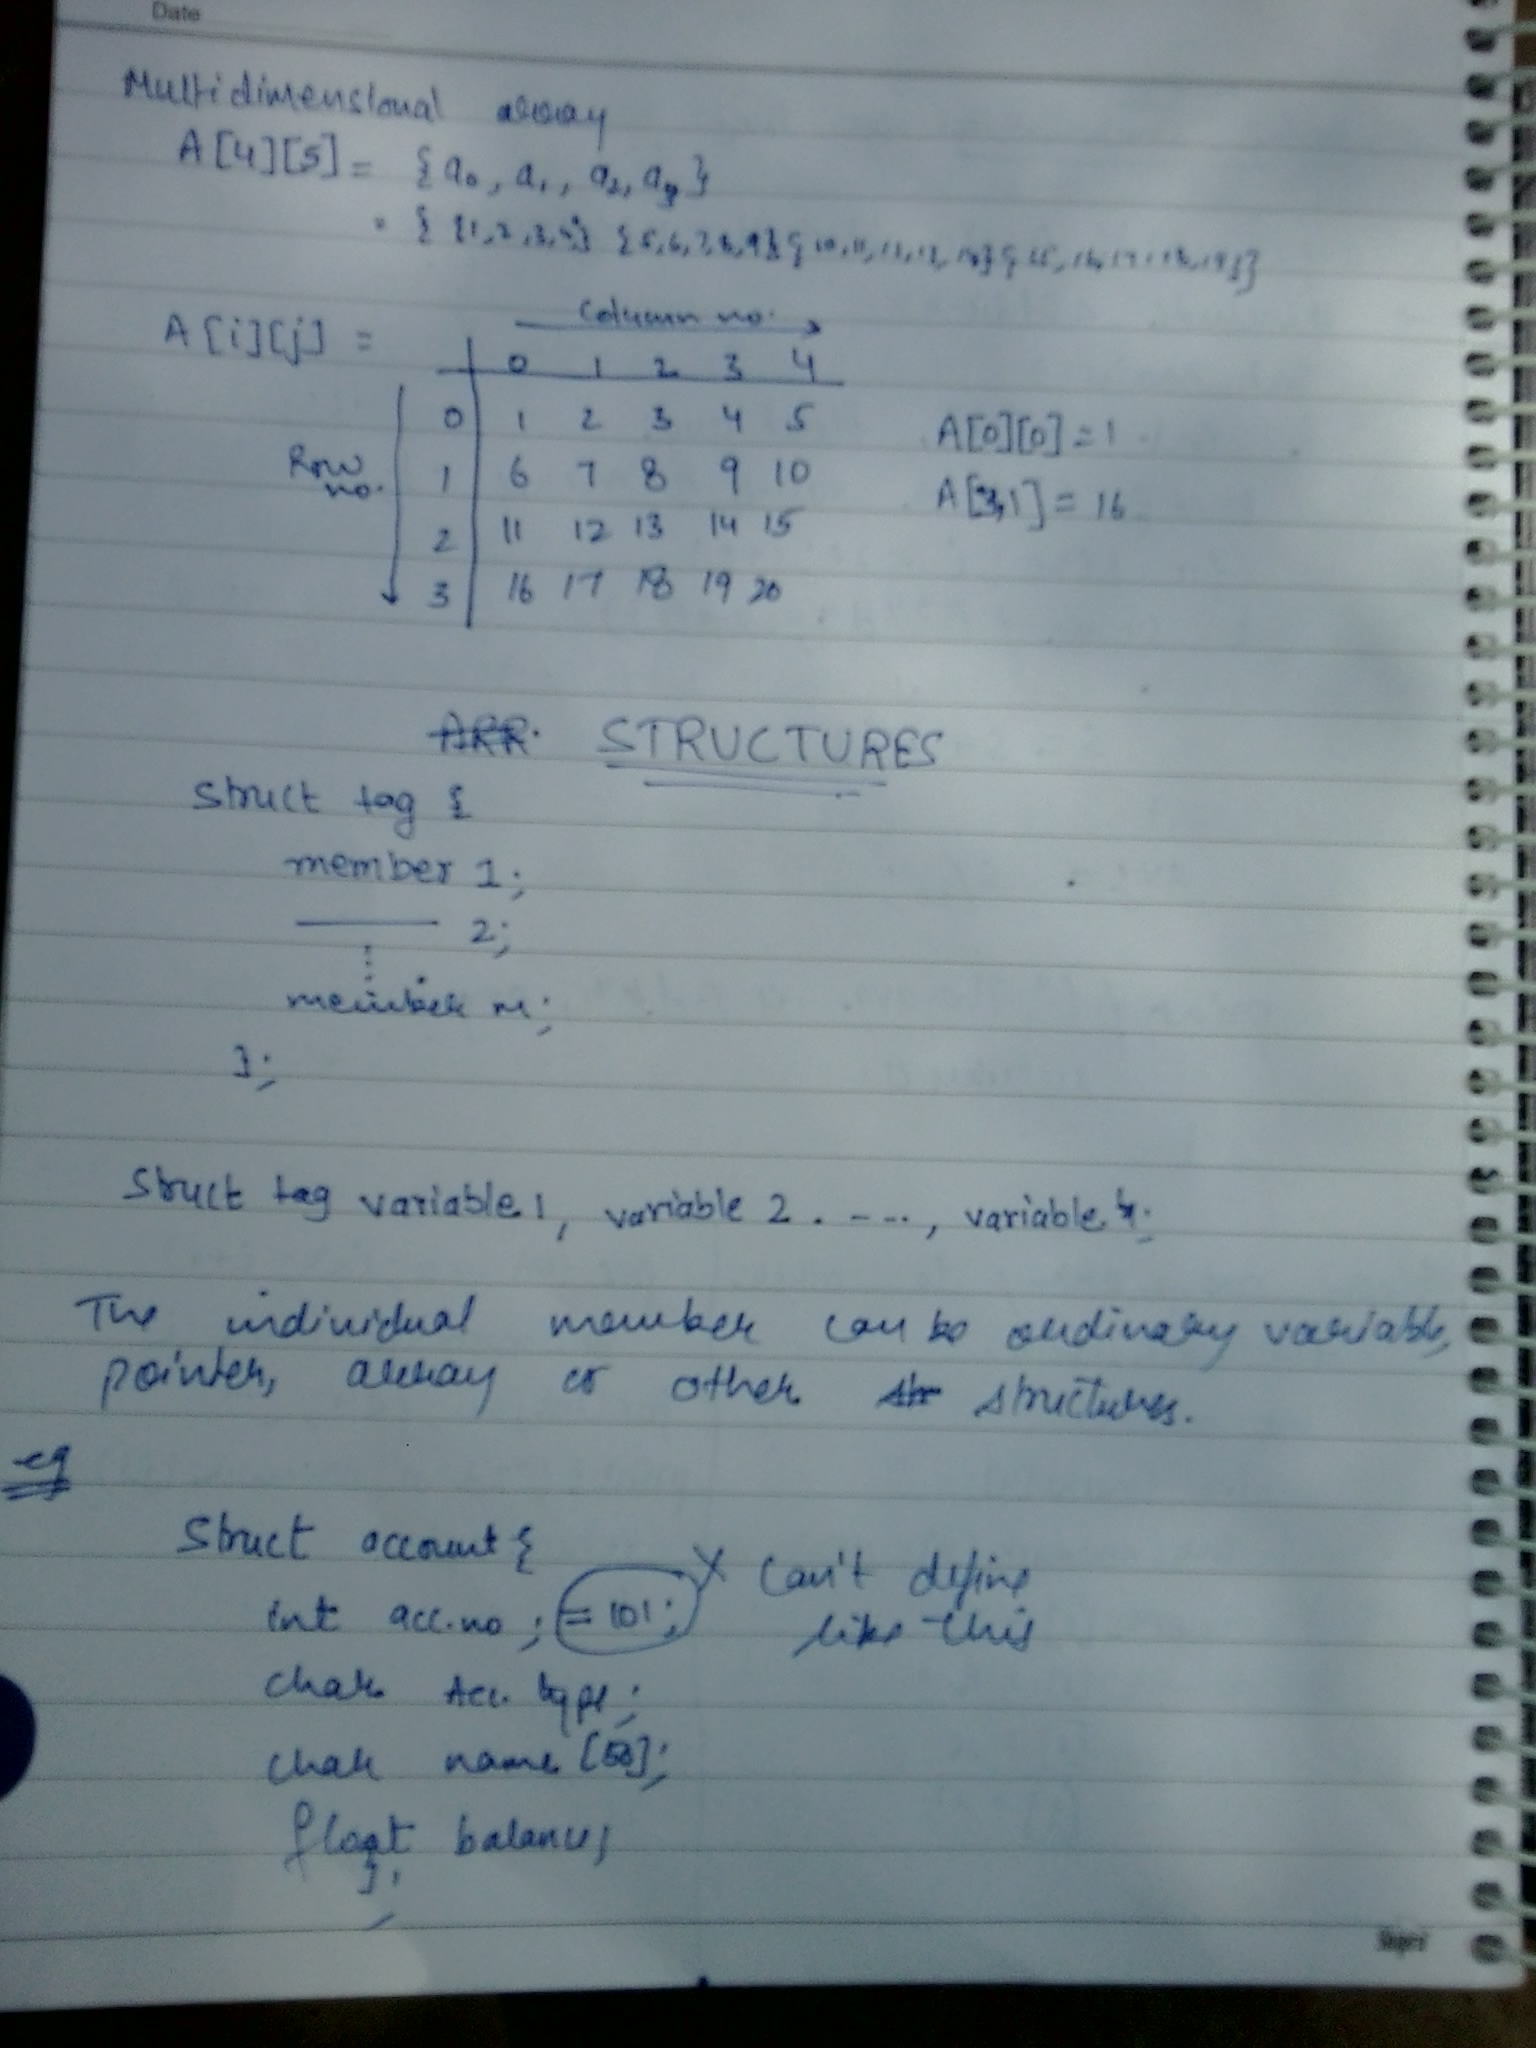 Date
Multidimensional array
A[4][5] = {a0, a1, a2, a3}
= { {1,2,3,4} {5,6,7,8,9} { 10,11,12,13,14} { 15,16,17,18,19 } }
A[i][j] =
Column no.
0 1 2 3 4
Row no.
0 1 2 3 4 5
A[0][0] = 1
1 6 7 8 9 10
A[3,1] = 16
2 11 12 13 14 15
3 16 17 18 19 20
ARR. STRUCTURES
Struct tag {
member 1;
2;
member m;
};
Struct tag variable 1, variable 2 . - - .., variable
The individual member can be ordinary variable,
pointer, array or other str structures.
eg
Struct account {
int acc.no ; = 101; X Can't define
like this
char Acc. type;
char name [50];
float balance;
};